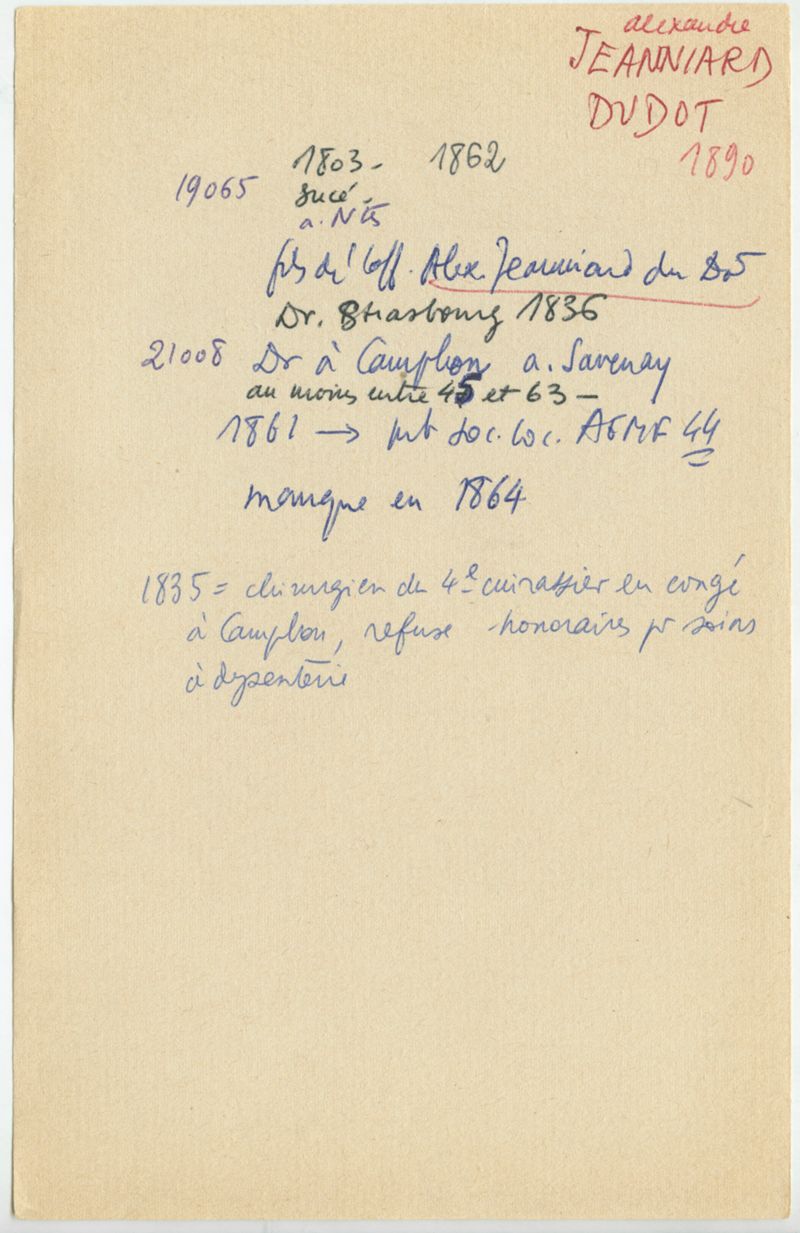 alexandre
JEANNIARD
DUDOT
1890
1803 - 1862
19065 Sucé -
a. Nts
fils de l'off. Alex. Jeanniard du Dot
Dr. Strasbourg 1836
21008 Dr à Campbon a. Savenay
au moins entre 45 et 63 -
1861 → soc. loc. AGMF 44
manque en 1864
1835 = chirurgien du 4e cuirassier en congé
à Campbon, refuse honoraires pr soins
à dysenterie